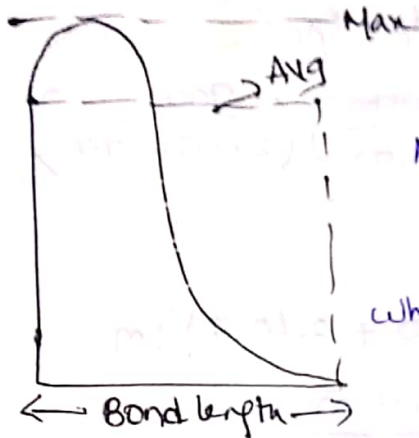 Max
Avg
Wh
Bond length